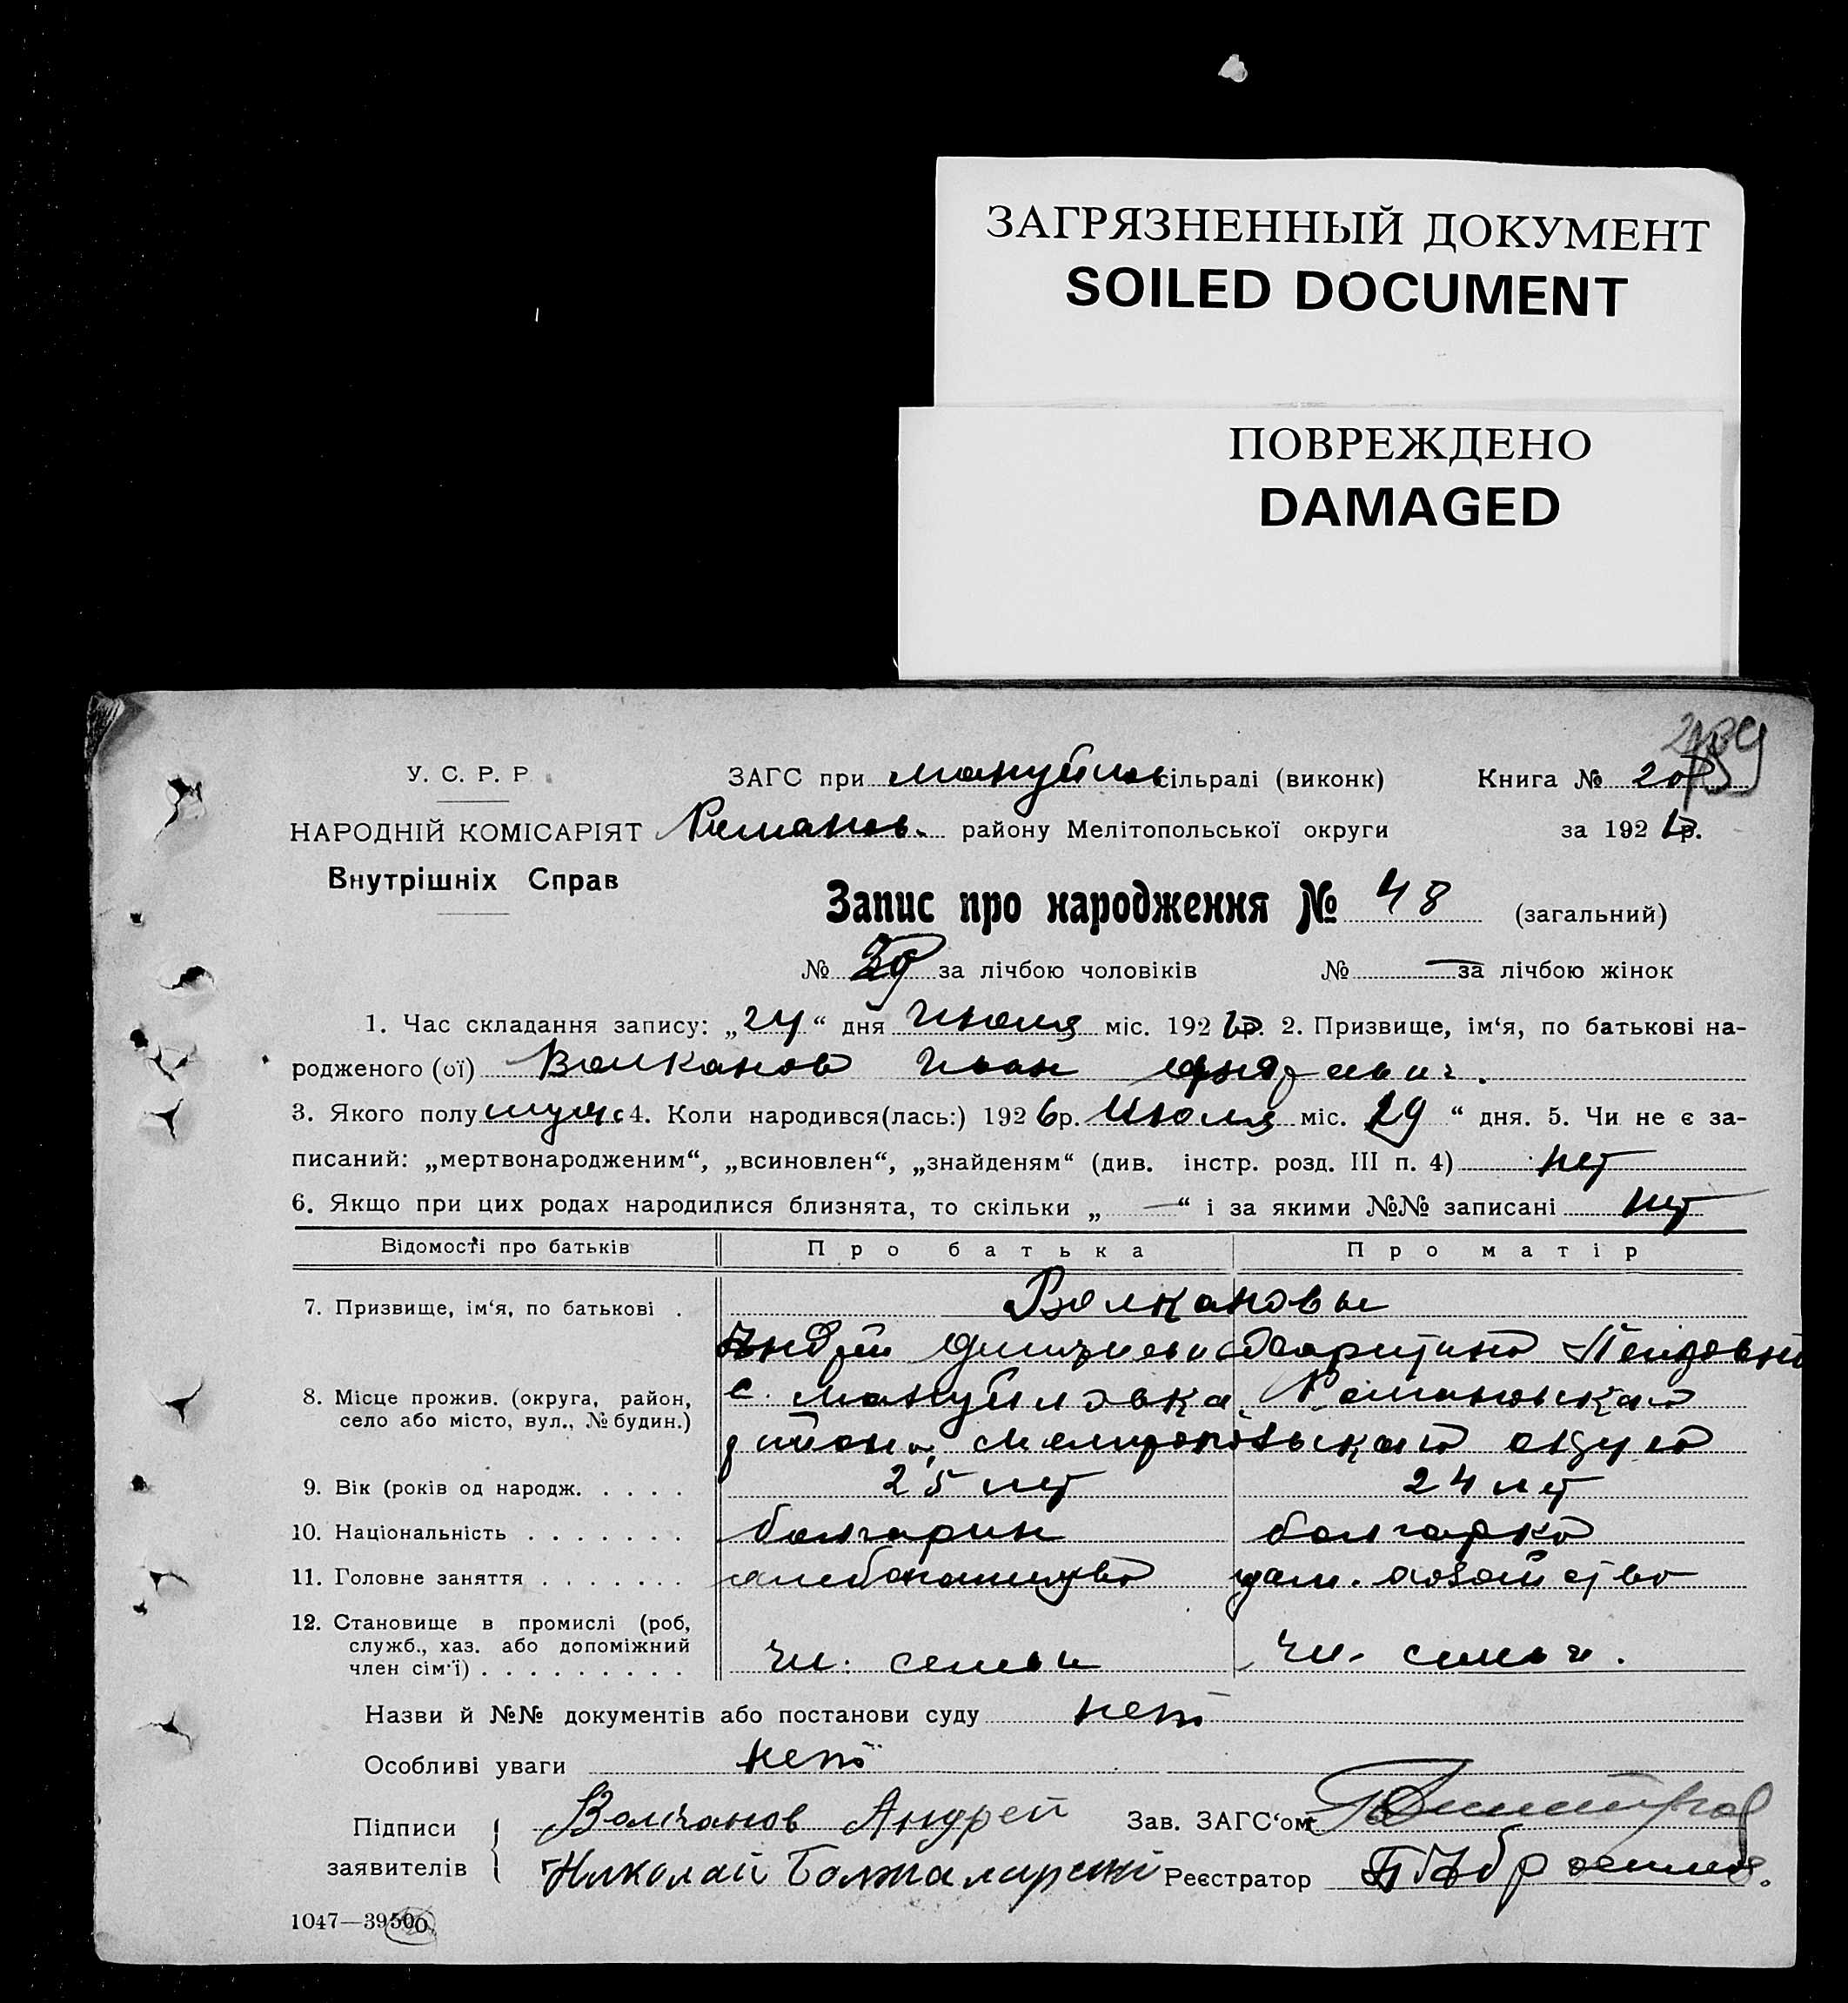 ЗАГРЯЗНЕННЫЙ ДОКУМЕНТ
SOILED DOCUMENT
ПОВРЕЖДЕНО
DAMAGED
У. С. Р. Р.
ЗАГС при Мануйлов сільраді (виконк) Книга №
НАРОДНІЙ КОМІСАРІЯТ Романов. району Мелітопольської округи за 1926 р.
Внутрішніх Справ
Запис про народження № 48 (загальний)
№ за лічбою чоловіків № — за лічбою жінок
1. Час складання запису: „24“ дня Июля міс. 1926 р. 2. Призвище, ім‘я, по батькові на-
родженого (ої) Волканов Иван Андреевич.
3. Якого полу мужс 4. Коли народився(лась:) 1926р. Июля міс. 19 “ дня. 5. Чи не є за-
писаний: „мертвонародженим“, „всиновлен“, „знайденям“ (див. інстр. розд. III п. 4) нет
6. Якщо при цих родах народилися близнята, то скільки „ — “ і за якими №№ записані нет
Відомості про батьків Про батька Про матір
7. Призвище, ім‘я, по батькові . Волкановы
Андрей Харитина
8. Місце прожив. (округа, район, село або місто, вул., № будин.) с. Мануйловка, Романовскаго
района, Мелитопольскаго округа
9. Вік (років од народж. . . . . 25 лет 24 лет
10. Національність . . . . . . . болгарин болгарка
11. Головне заняття . . . . . . . хлебопашество дом. хозяйство
12. Становище в промислі (роб,
служб., хаз. або допоміжний
член сім‘ї) . . . . . . . . . чл. семьи чл. семьи.
Назви й №№ документів або постанови суду нет
Особливі уваги нет
Підписи Волканов Андрей Зав. ЗАГС‘ом Димитров
заявителів Николай Реєстратор
1047—3950